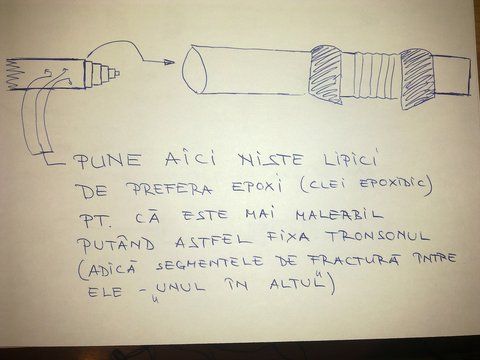 PUNE AICI NISTE LIPICI
DE PREFERA EPOXI (CLEI EPOXIDIC)
PT. CĂ ESTE MAI MALEABIL
PUTÂND ASTFEL FIXA TRONSONUL
(ADICĂ SEGMENTELE DE FRACTURĂ ÎNTRE
ELE - "UNUL ÎN ALTUL")